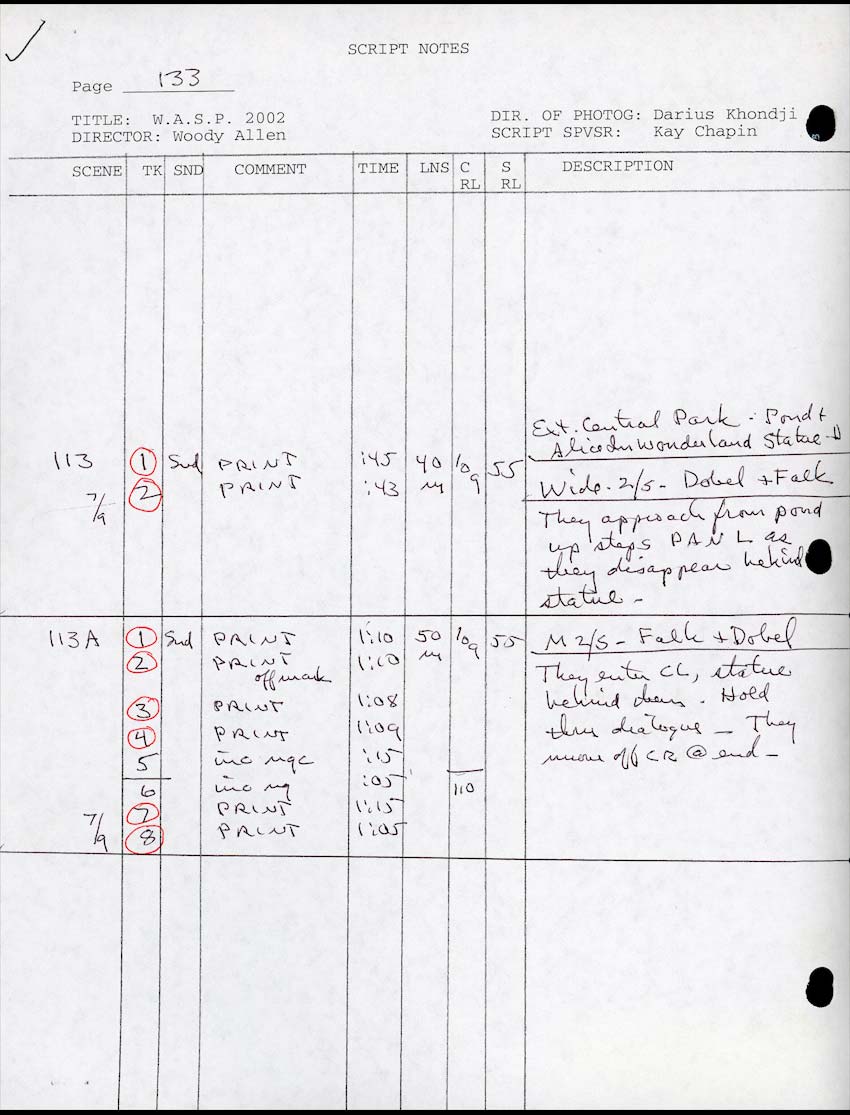 SCRIPT NOTES
Page 133
TITLE: W.A.S.P. 2002 DIR. OF PHOTOG: Darius Khondji
DIRECTOR: Woody Allen SCRIPT SPVSR: Kay Chapin
SCENE TK SND COMMENT TIME LNS C RL S RL DESCRIPTION
Ext. Central Park - Pond +
Alice In Wonderland Statue - D
113 1 Snd PRINT :45 40 109 55
2 PRINT :43 m Wide - 2/S - Dobel + Falk
7/9 They approach from pond
up steps PAN L as
they disappear behind
statue -
113A 1 Snd PRINT 1:10 50 109 55 M 2/S - Falk + Dobel
2 PRINT 1:10 m They enter CL, statue
off mark behind them. Hold
3 PRINT 1:08
4 PRINT 1:09 thru dialogue - They
5 inc ngc :15 move off CR @ end -
6 inc ng :05 110
7 PRINT 1:15
7/9 8 PRINT 1:05